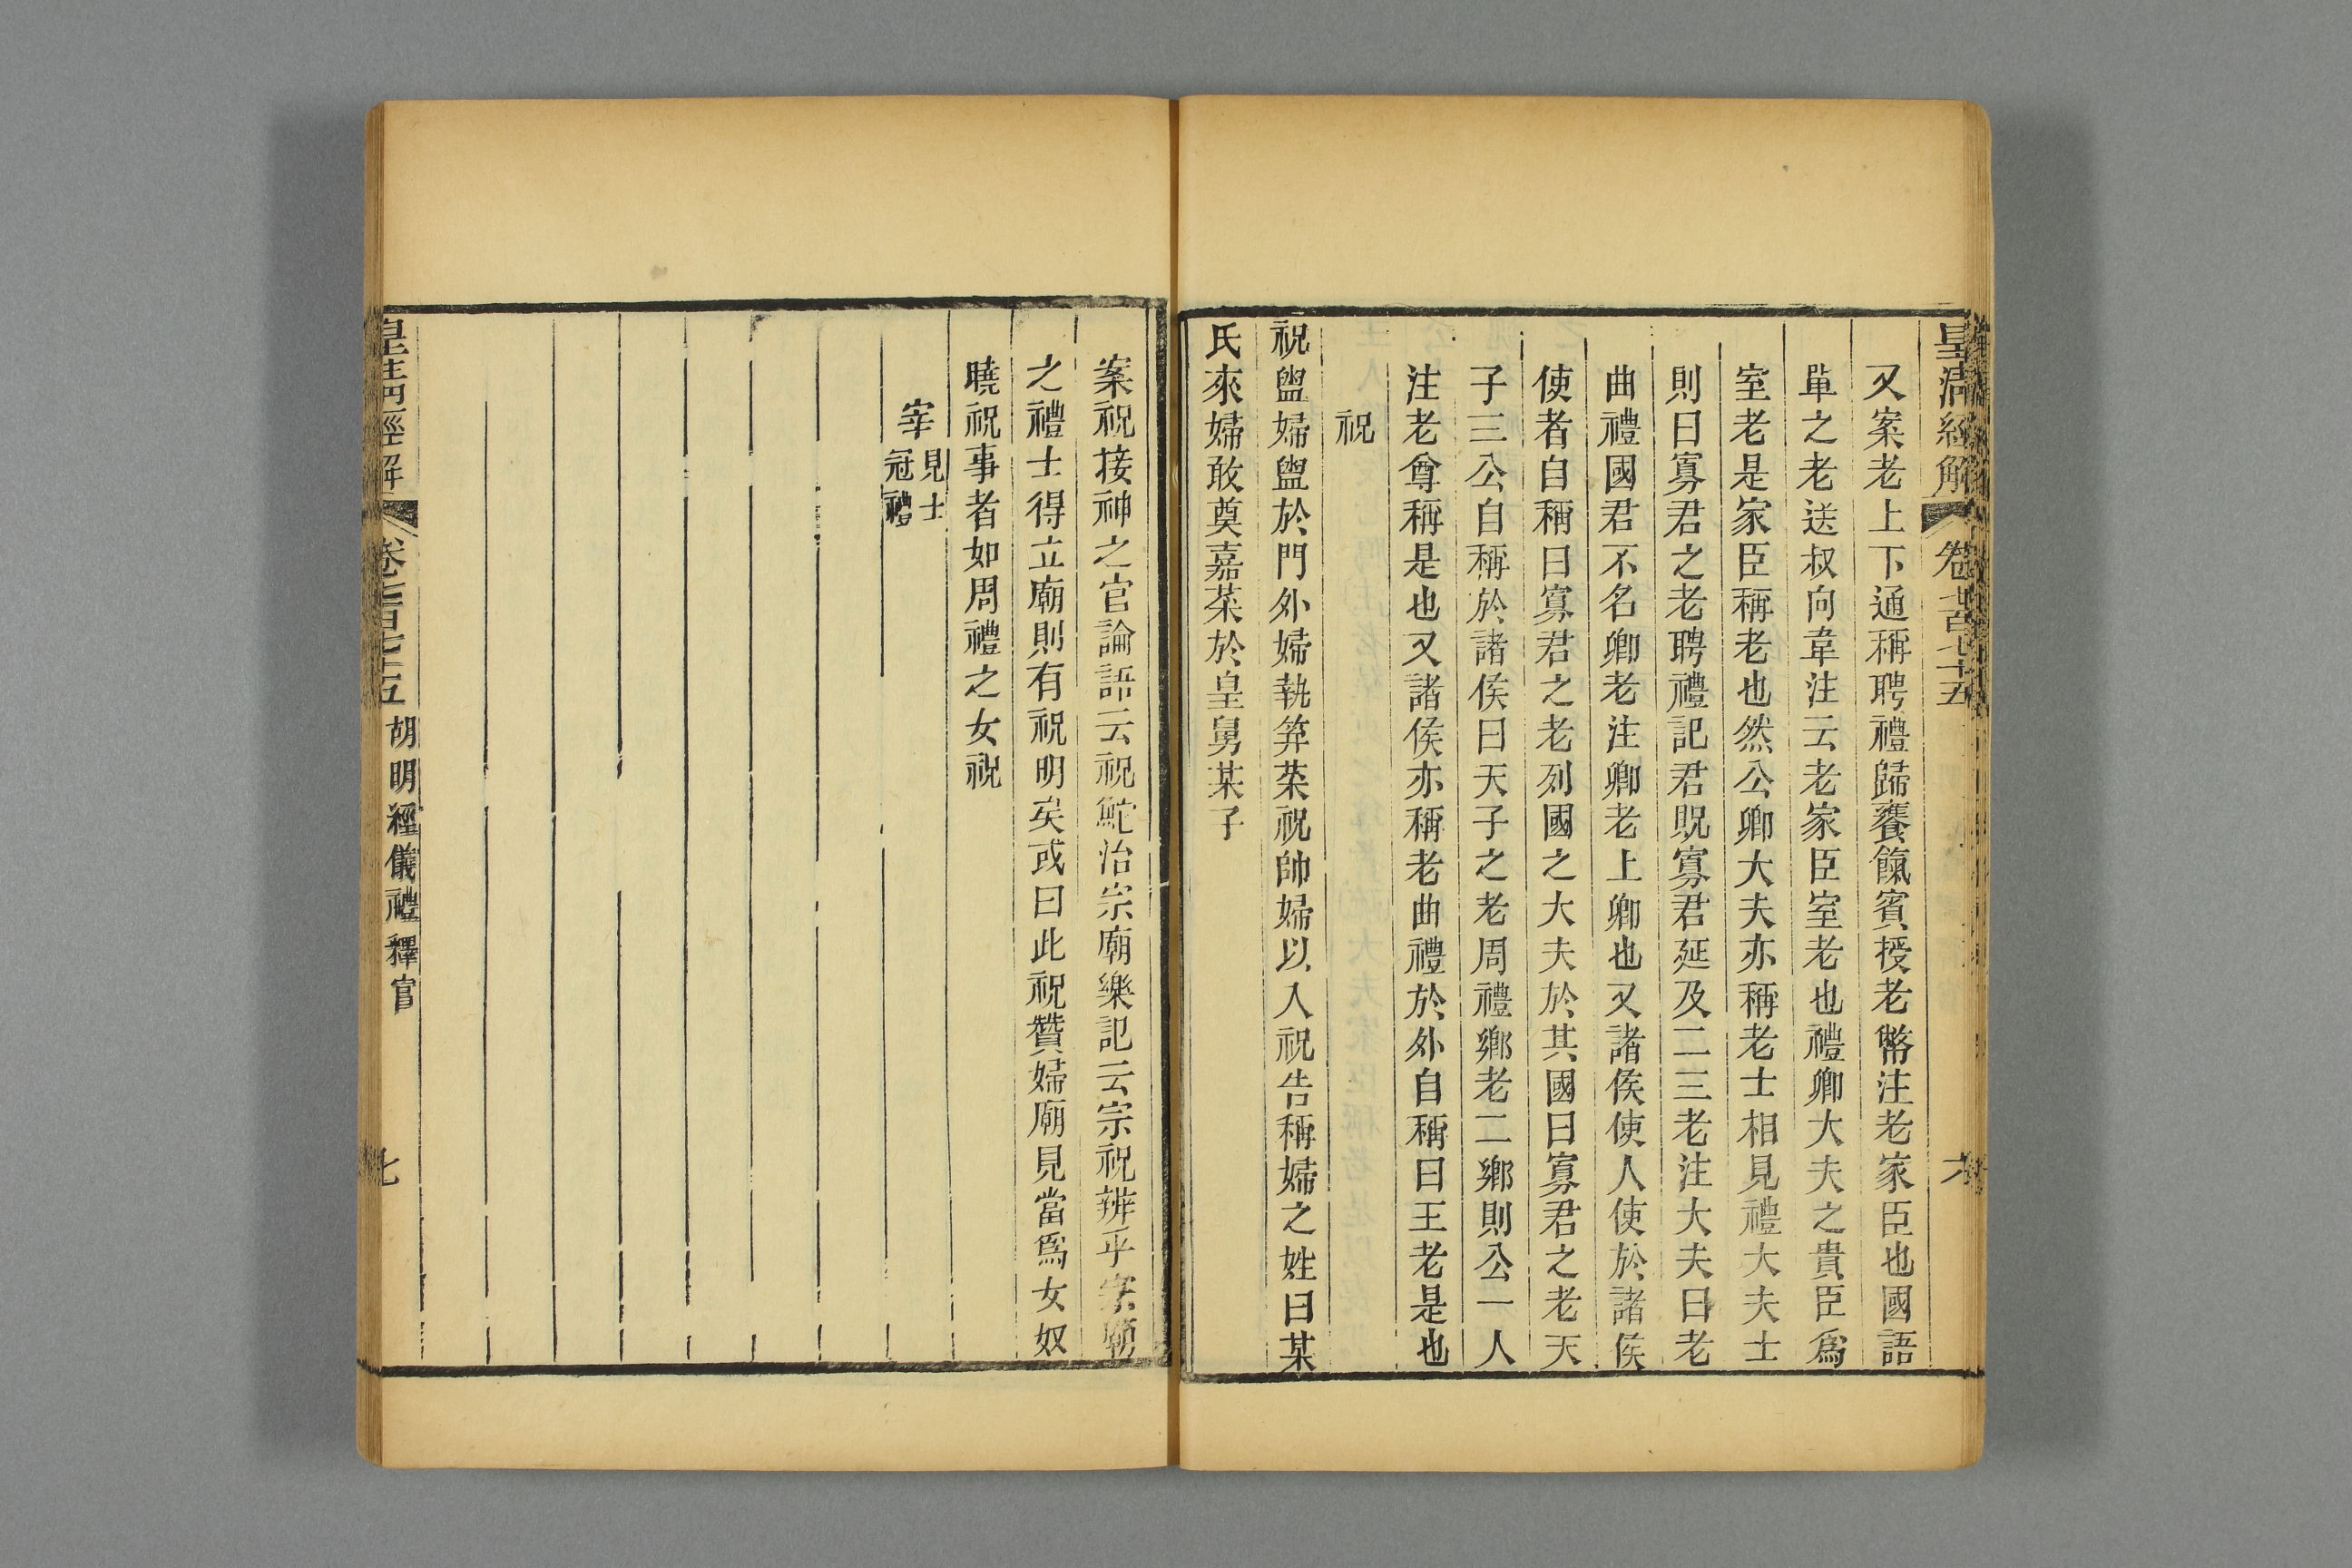 皇清經解 卷七百七十五 六
又案老上下通稱聘禮歸饔餼賓授老幣注老家臣也國語
單之老送叔向韋注云老家臣室老也禮卿大夫之貴臣爲
室老是家臣稱老也然公卿大夫亦稱老士相見禮大夫士
則曰寡君之老聘禮記君貺寡君延及二三老注大夫曰老
曲禮國君不名卿老注卿老上卿也又諸侯使人使於諸侯
使者自稱曰寡君之老列國之大夫於其國曰寡君之老天
子三公自稱於諸侯曰天子之老周禮鄉老二鄉則公一人
注老尊稱是也又諸侯亦稱老曲禮於外自稱曰王老是也
祝
祝盥婦盥於門外婦執笲菜祝帥婦以入祝告稱婦之姓曰某
氏來婦敢奠嘉菜於皇舅某子
案祝接神之官論語云祝鮀治宗廟樂記云宗祝辨乎宗廟
之禮士得立廟則有祝明矣或曰此祝贊婦廟見當爲女奴
曉祝事者如周禮之女祝
宰 見士冠禮
皇清經解 卷七百七十五 胡明經儀禮釋官 七